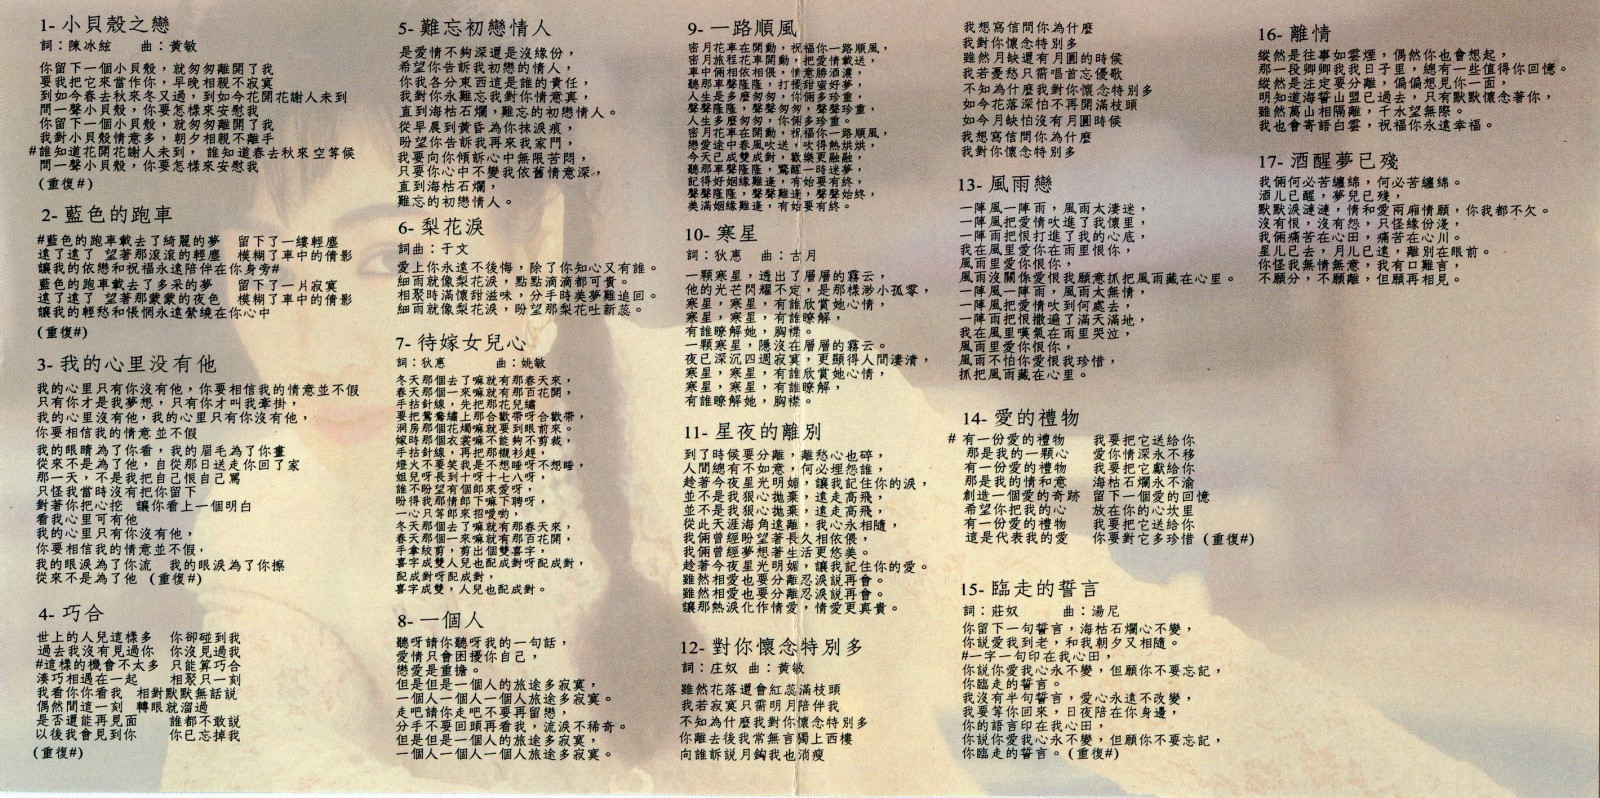 1- 小貝殼之戀
詞：陳冰絃　曲：黃敏
你留下一個小貝殼，就匆匆離開了我
要我把它來當作你，早晚相親不寂寞
到如今春去秋來冬又過，到如今花開花謝人未到
問一聲小貝殼，你要怎樣來安慰我
你留下一個小貝殼，就匆匆離開了我
我對小貝殼情意多，朝夕相親不離手
#誰知道花開花謝人未到，誰知道春去秋來空等候
問一聲小貝殼，你要怎樣來安慰我
(重復#)
2- 藍色的跑車
#藍色的跑車載去了綺麗的夢　留下了一縷輕塵
遠了遠了 望著那滾滾的輕塵　模糊了車中的倩影
讓我的依戀和祝福永遠陪伴在你身旁#
藍色的跑車載去了多采的夢　留下了一片寂寞
遠了遠了 望著那蒙蒙的夜色　模糊了車中的倩影
讓我的輕愁和悵惘永遠縈繞在你心中
(重復#)
3- 我的心里没有他
我的心里只有你沒有他，你要相信我的情意並不假
只有你才是我夢想，只有你才叫我牽掛，
我的心里沒有他，我的心里只有你沒有他，
你要相信我的情意並不假
我的眼睛為了你看，我的眉毛為了你畫
從來不是為了他，自從那日送走你回了家
那一天，不是我把自己恨自己罵
只怪我當時沒有把你留下
對著你把心挖　讓你看上一個明白
看我心里可有他
我的心里只有你沒有他，
你要相信我的情意並不假，
我的眼淚為了你流　我的眼淚為了你擦
從來不是為了他 (重復#)
4- 巧合
世上的人兒這樣多　你卻碰到我
過去我沒有見過你　你沒見過我
#這樣的機會不太多　只能算巧合
湊巧相遇在一起　　相聚只一刻
我看你你看我　相對默默無話說
偶然間這一刻　轉眼就溜過
是否還能再見面　　誰都不敢說
以後我會見到你　　你已忘掉我
(重復#)
5- 難忘初戀情人
是愛情不夠深還是沒緣份，
希望你告訴我初戀的情人，
你我各分東西這是誰的責任，
我對你永難忘我對你情意真，
直到海枯石爛，難忘的初戀情人。
從早晨到黃昏為你抹淚痕，
盼望你告訴我再來我家門，
我要向你傾訴心中無限苦悶，
只要你心中不變我依舊情意深，
直到海枯石爛，
難忘的初戀情人。
6- 梨花淚
詞曲：于文
愛上你永遠不後悔，除了你知心又有誰。
細雨就像梨花淚，點點滴滴都可貴。
相聚時滿懷甜滋味，分手時美夢難追回。
細雨就像梨花淚，盼望那梨花吐新蕊。
7- 待嫁女兒心
詞：狄惠　　曲：姚敏
冬天那個去了嘛就有那春天來，
春天那個一來嘛就有那百花開，
手拈針線，先把那花兒繡
要把鴛鴦繡上那合歡帶呀合歡帶，
洞房那個花燭嘛就要到眼前來。
嫁時那個衣裳嘛不能夠不剪裁，
手拈針線，再把那襯衫趕，
燈火不要笑我是不想睡呀不想睡，
姐兒呀長到十呀十七八呀，
誰不盼望有個郎來愛呀，
盼得我那情郎下嘛下聘呀，
一心只等郎來招愛喲，
冬天那個去了嘛就有那春天來，
春天那個一來嘛就有那百花開，
手拿絞剪，剪出個雙喜字，
喜字成雙人兒也配成對呀配成對，
配成對呀配成對，
喜字成雙，人兒也配成對。
8- 一個人
聽呀請你聽呀我的一句話，
愛情只會困擾你自己，
戀愛是重擔。
但是但是一個人的旅途多寂寞。
一個人一個人一個人旅途多寂寞。
走吧請你走吧不要再留戀，
分手不要回頭再看我，流淚不稀奇。
但是但是一個人的旅途多寂寞，
一個人一個人一個人旅途多寂寞。
9- 一路順風
密月花車在開動，祝福你一路順風，
密月旅程花車開動，把愛情載送，
車中倆相依相偎，情意勝酒濃，
聽那車聲隆隆，打擾甜蜜好夢，
人生是多麼匆匆，你倆多珍重，
聲聲隆隆，聲聲匆匆，聲聲珍重，
人生多麼匆匆，你倆多珍重。
密月花車在開動，祝福你一路順風，
戀愛途中春風吹送，吹得熱烘烘，
今天已成雙成對，歡樂更融融，
聽那車聲隆隆，驚醒一時迷夢，
記得好姻緣難逢，有始要有終，
聲聲隆隆，聲聲難逢，聲聲始終，
美滿姻緣難逢，有始要有終。
10- 寒星
詞：狄惠　曲：古月
一顆寒星，透出了層層的霧云，
他的光芒閃耀不定，是那樣渺小孤零，
寒星，寒星，有誰欣賞她心情，
寒星，寒星，有誰瞭解，
有誰瞭解她，胸襟。
一顆寒星，隱沒在層層的霧云。
夜已深沉四週寂寞，更顯得人間淒清，
寒星，寒星，有誰欣賞她心情，
寒星，寒星，有誰瞭解，
有誰瞭解她，胸襟。
11- 星夜的離別
到了時候要分離，離愁心也碎，
人間總有不如意，何必埋怨誰，
趁著今夜星光明媚，讓我記住你的淚，
並不是我狠心拋棄，遠走高飛，
並不是我狠心拋棄，遠走高飛，
從此天涯海角遠離，我心永相隨，
我倆曾經盼望著長久相依偎，
我倆曾經夢想著生活更悠美。
趁著今夜星光明媚，讓我記住你的愛。
雖然相愛也要分離忍淚說再會。
雖然相愛也要分離忍淚說再會。
讓那熱淚化作情愛，情愛更真貴。
12- 對你懷念特別多
詞：庄奴　曲：黃敏
雖然花落還會紅蕊滿枝頭
我若寂寞只需明月陪伴我
不知為什麼我對你懷念特別多
你離去後我常無言獨上西樓
向誰訴説月鈎我也消瘦
我想寫信問你為什麼
我對你懷念特別多
雖然月缺還有月圓的時候
我若憂愁只需唱首忘優歌
不知為什麼我對你懷念特別多
如今花落深怕不再開滿枝頭
如今月缺怕沒有月圓我
我想寫信問你為什麼
我對你懷念特別多
13- 風雨戀
一陣風一陣雨，風雨太淒迷，
一陣風把愛情吹進了我懷里，
一陣雨把恨打進了我的心底，
我在風里愛你在雨里恨你，
風雨里愛你恨你，
風雨沒關係愛恨我願意抓把風雨藏在心里。
一陣風一陣雨，風雨太無情，
一陣風把愛情吹到何處去，
一陣雨把恨撒遍了滿天滿地，
我在風里嘆氣在雨里哭泣，
風雨里愛你恨你，
風雨不怕你愛恨我珍惜，
抓把風雨藏在心里。
14- 愛的禮物
# 有一份愛的禮物　　我要把它送給你
那是我的一顆心　　愛你情深永不移
有一份愛的禮物　　我要把它獻給你
那是我的情和意　　海枯石爛永不渝
創造一個愛的奇跡　留下一個愛的回憶
希望你把我的心　　放在你的心坎里
有一份愛的禮物　　我要把它送給你
這是代表我的愛　　你要對它多珍惜 (重復#)
15- 臨走的誓言
詞：莊奴　　　曲：湯尼
你留下一句誓言，海枯石爛心不變，
你說愛我到老，和我朝夕又相隨。
#一字一句印在我心田，
你說你愛我心永不變，但願你不要忘記，
你臨走的誓言。
我沒有半句誓言，愛心永遠不改變，
我要等你回來，日夜陪在你身邊，
你的語言印在我心田，
你說你愛我心永不變，但願你不要忘記，
你臨走的誓言。(重復#)
16- 離情
縱然是往事如雲煙，偶然你也會想起，
那一段卿卿我我日子里，總有一些值得你回憶。
縱然是注定要分離，偏偏想見你一面，
明知道海誓山盟已過去，只有默默懷念著你，
雖然萬山相隔離，千水望無際。
我也會寄語白雲，祝福你永遠幸福。
17- 酒醒夢已殘
我倆何必苦纏綿，何必苦纏綿。
酒儿已醒，夢兒已殘，
默默淚漣漣，情和愛兩廂情願，你我都不欠。
沒有恨，沒有怨，只怪緣份淺，
我倆痛苦在心田，痛苦在心川。
星儿已去，月儿已遠，離別在眼前。
你怪我無情無意，我有口難言，
不願分，不願離，但願再相見。